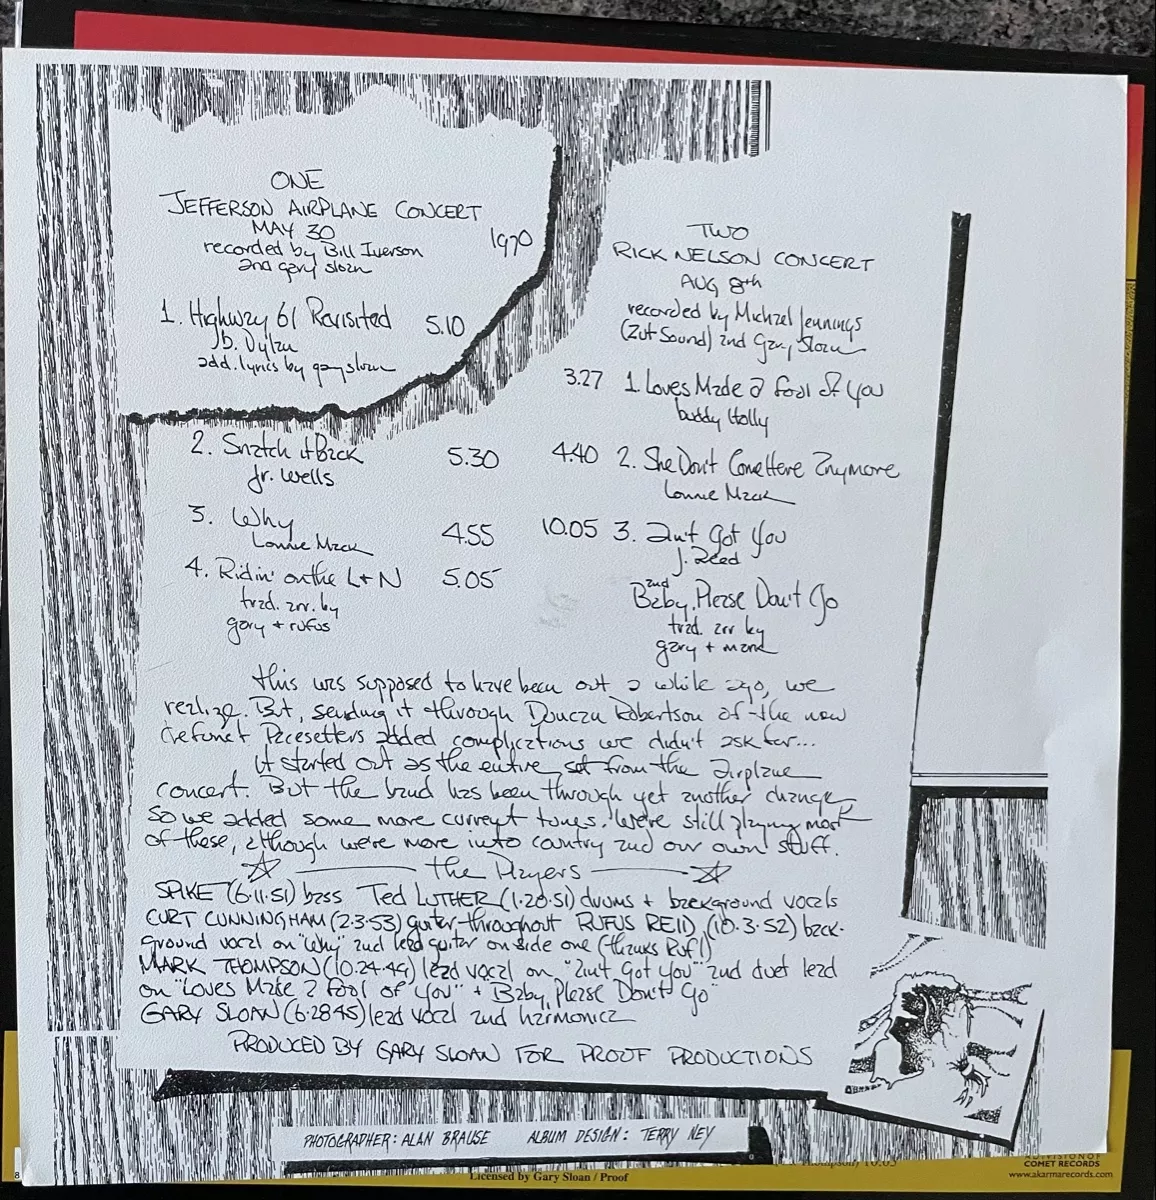 ONE
JEFFERSON AIRPLANE CONCERT
MAY 30 1970
recorded by Bill Iverson
and gary sloan
1. Highway 61 Revisited 5.10
b. Dylan
add. lyrics by gary sloan
2. Snatch it Back 5.30
Jr. Wells
3. Why 4.55
Lonnie Mack
4. Ridin' on the L+N 5.05
trad. arr. by
gary + rufus
TWO
RICK NELSON CONCERT
AUG 8th
recorded by Michael Jennings
(Zut Sound) and Gary Sloan
3.27 1. Loves Made a fool of You
buddy Holly
4.40 2. She Don't Come Here Anymore
Lonnie Mack
10.05 3. ain't Got You
J. Reed
and
Baby, Please Don't Go
trad. arr by
gary + mark
this was supposed to have been out a while ago, we
realize. But, sending it through Duncan Robertson of the now
defunct Pacesetters added complications we didn't ask for...
It started out as the entire set from the airplane
concert. But the band has been through yet another change
so we added some more current tunes. We're still playing most
of these, although we're more into country and our own stuff.
the Players
SPIKE (6.11.51) bass Ted LUTHER (1.20.51) drums + background vocals
CURT CUNNINGHAM (2.3.53) guitar-throughout RUFUS REID (10.3.52) back-
ground vocal on "why" and lead guitar on side one (thanks Ruf!)
MARK THOMPSON (10.24.49) lead vocal on "ain't got you" and duet lead
on "Loves Made a fool of You" + "Baby, Please Don't Go"
GARY SLOAN (6.28.45) lead vocal and harmonica
PRODUCED BY GARY SLOAN FOR PROOF PRODUCTIONS
PHOTOGRAPHER: ALAN BRAUSE ALBUM DESIGN: TERRY NEY
Licensed by Gary Sloan / Proof
A DIVISION OF
COMET RECORDS
www.akarmarecords.com